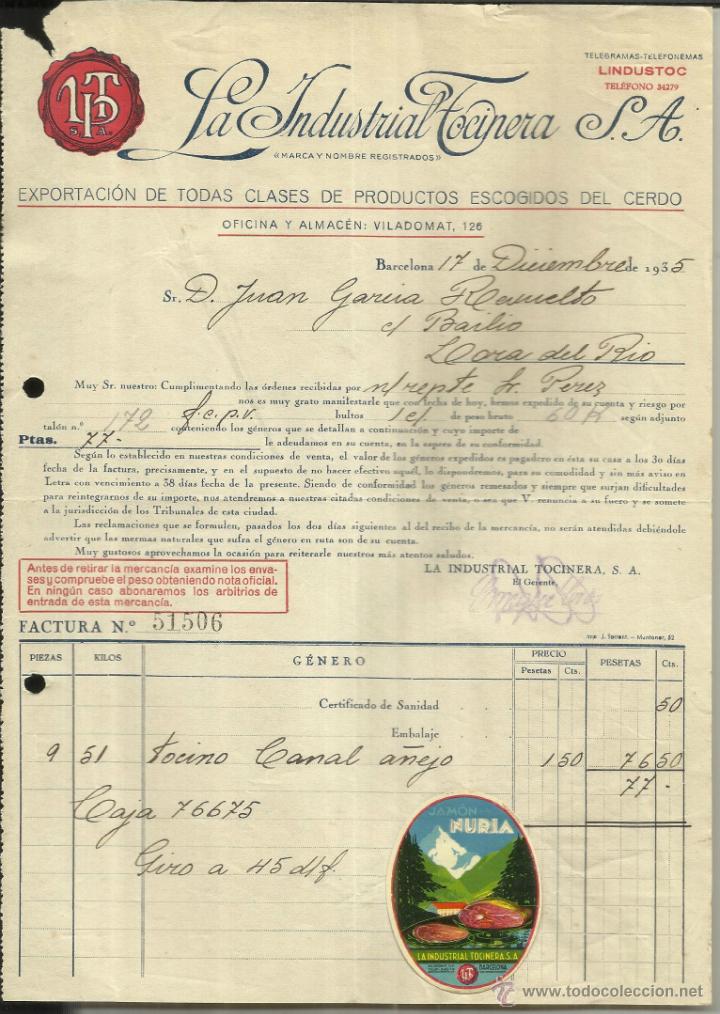 TELEGRAMAS-TELEFONEMAS
LINDUSTOC
TELÉFONO 34279
S. A.
La Industrial Tocinera S.A.
«MARCA Y NOMBRE REGISTRADOS»
EXPORTACIÓN DE TODAS CLASES DE PRODUCTOS ESCOGIDOS DEL CERDO
OFICINA Y ALMACÉN: VILADOMAT, 126
Barcelona 17 de Diciembre de 1935
Sr. D. Juan Garcia
c/ Bailio
Lora del Rio
Muy Sr. nuestro: Cumplimentando las órdenes recibidas por n/repte Sr. Perez
nos es muy grato manifestarle que con fecha de hoy, hemos expedido de su cuenta y riesgo por
talón n.º 172 f.c.p.v. bultos 1 c/ de peso bruto 60 K según adjunto
conteniendo los géneros que se detallan a continuación y cuyo importe de
Ptas. 77.- le adeudamos en su cuenta, en la espera de su conformidad.
Según lo establecido en nuestras condiciones de venta, el valor de los géneros expedidos es pagadero en ésta su casa a los 30 días
fecha de la factura, precisamente, y en el supuesto de no hacer efectivo aquél, lo dispondremos, para su comodidad y sin más aviso en
Letra con vencimiento a 38 días fecha de la presente. Siendo de conformidad los géneros remesados y siempre que surjan dificultades
para reintegrarnos de su importe, nos atendremos a nuestras citadas condiciones de venta, o sea que V. renuncia a su fuero y se somete
a la jurisdicción de los Tribunales de esta ciudad.
Las reclamaciones que se formulen, pasados los dos días siguientes al del recibo de la mercancía, no serán atendidas debiéndole
advertir que las mermas naturales que sufra el género en ruta son de su cuenta.
Muy gustosos aprovechamos la ocasión para reiterarle nuestros más atentos saludos.
LA INDUSTRIAL TOCINERA, S. A.
El Gerente,
Antes de retirar la mercancía examine los enva-
ses y compruebe el peso obteniendo nota oficial.
En ningún caso abonaremos los arbitrios de
entrada de esta mercancía.
FACTURA N.º 51506
Imp. J. Torrent. – Muntaner, 52
PIEZAS KILOS GÉNERO PRECIO PESETAS Cts.
Pesetas Cts.
Certificado de Sanidad 50
Embalaje
9 51 Tocino Canal añejo 1 50 76 50
77 -
Caja 76675
Giro a 45 d/f.
JAMÓN
NURIA
LA INDUSTRIAL TOCINERA, S.A.
BARCELONA
www.todocoleccion.net